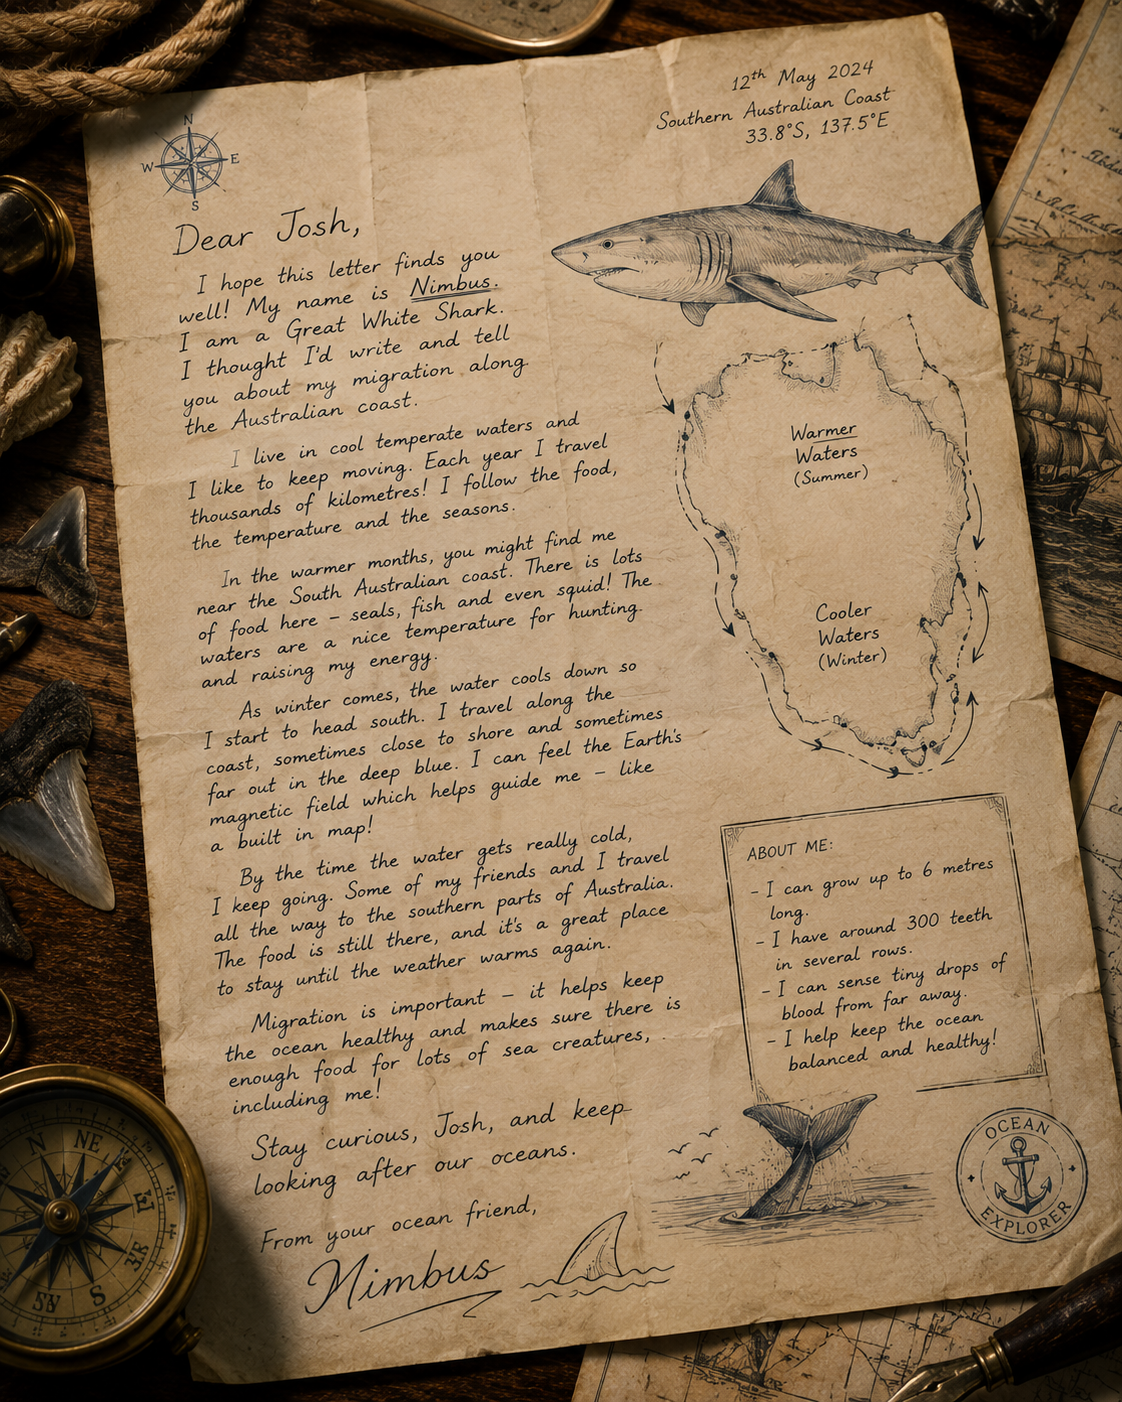 12th May 2024
Southern Australian Coast
33.8°S, 137.5°E
N
W E
S
Dear Josh,
I hope this letter finds you
well! My name is Nimbus.
I am a Great White Shark.
I thought I'd write and tell
you about my migration along
the Australian coast.
I live in cool temperate waters and
I like to keep moving. Each year I travel
thousands of kilometres! I follow the food,
the temperature and the seasons.
In the warmer months, you might find me
near the South Australian coast. There is lots
of food here – seals, fish and even squid! The
waters are a nice temperature for hunting.
and raising my energy.
As winter comes, the water cools down so
I start to head south. I travel along the
coast, sometimes close to shore and sometimes
far out in the deep blue. I can feel the Earth's
magnetic field which helps guide me – like
a built in map!
By the time the water gets really cold,
I keep going. Some of my friends and I travel
all the way to the southern parts of Australia.
The food is still there, and it's a great place
to stay until the weather warms again.
Migration is important – it helps keep
the ocean healthy and makes sure there is
enough food for lots of sea creatures, .
including me!
Stay curious, Josh, and keep
looking after our oceans.
From your ocean friend,
Nimbus
Warmer
Waters
(Summer)
Cooler
Waters
(Winter)
ABOUT ME:
- I can grow up to 6 metres
long.
- I have around 300 teeth
in several rows.
- I can sense tiny drops of
blood from far away.
- I help keep the ocean
balanced and healthy!
OCEAN
EXPLORER
N NE E
S